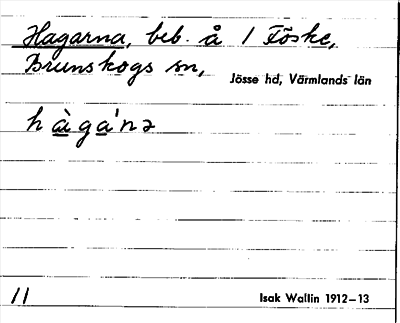 Hagarna, beb. å 1 Föske,
Brunskogs sn,
Jösse hd, Värmlands län
hàgá'nə
11
Isak Wallin 1912–13